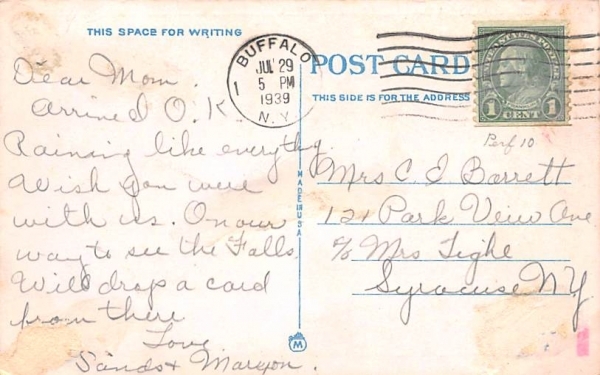 THIS SPACE FOR WRITING
Dear Mom.
Arrived O.K.
Raining like everythg
Wish you were
with us. On our
way to see the Falls
Will drop a card
from there
Love
Sands + Maryon.
BUFFALO
JUL 29
5 PM
1939
N.Y.
1
POST CARD
THIS SIDE IS FOR THE ADDRESS
UNITED STATES POSTAGE
1 CENT 1
Perf 10
Mrs C. E Barrett
121 Park View Ave
c/o Mrs Tighe
Syracuse N.Y
MADE IN USA
M